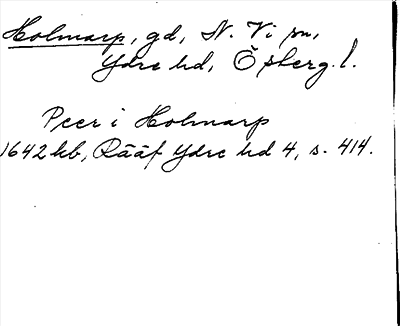 Holmarp, gd, N. Vi sn,
Ydre hd, Öster g. l.
Peer i Holmarp
1642 kb, Rääf Ydre hd 4, s. 414.